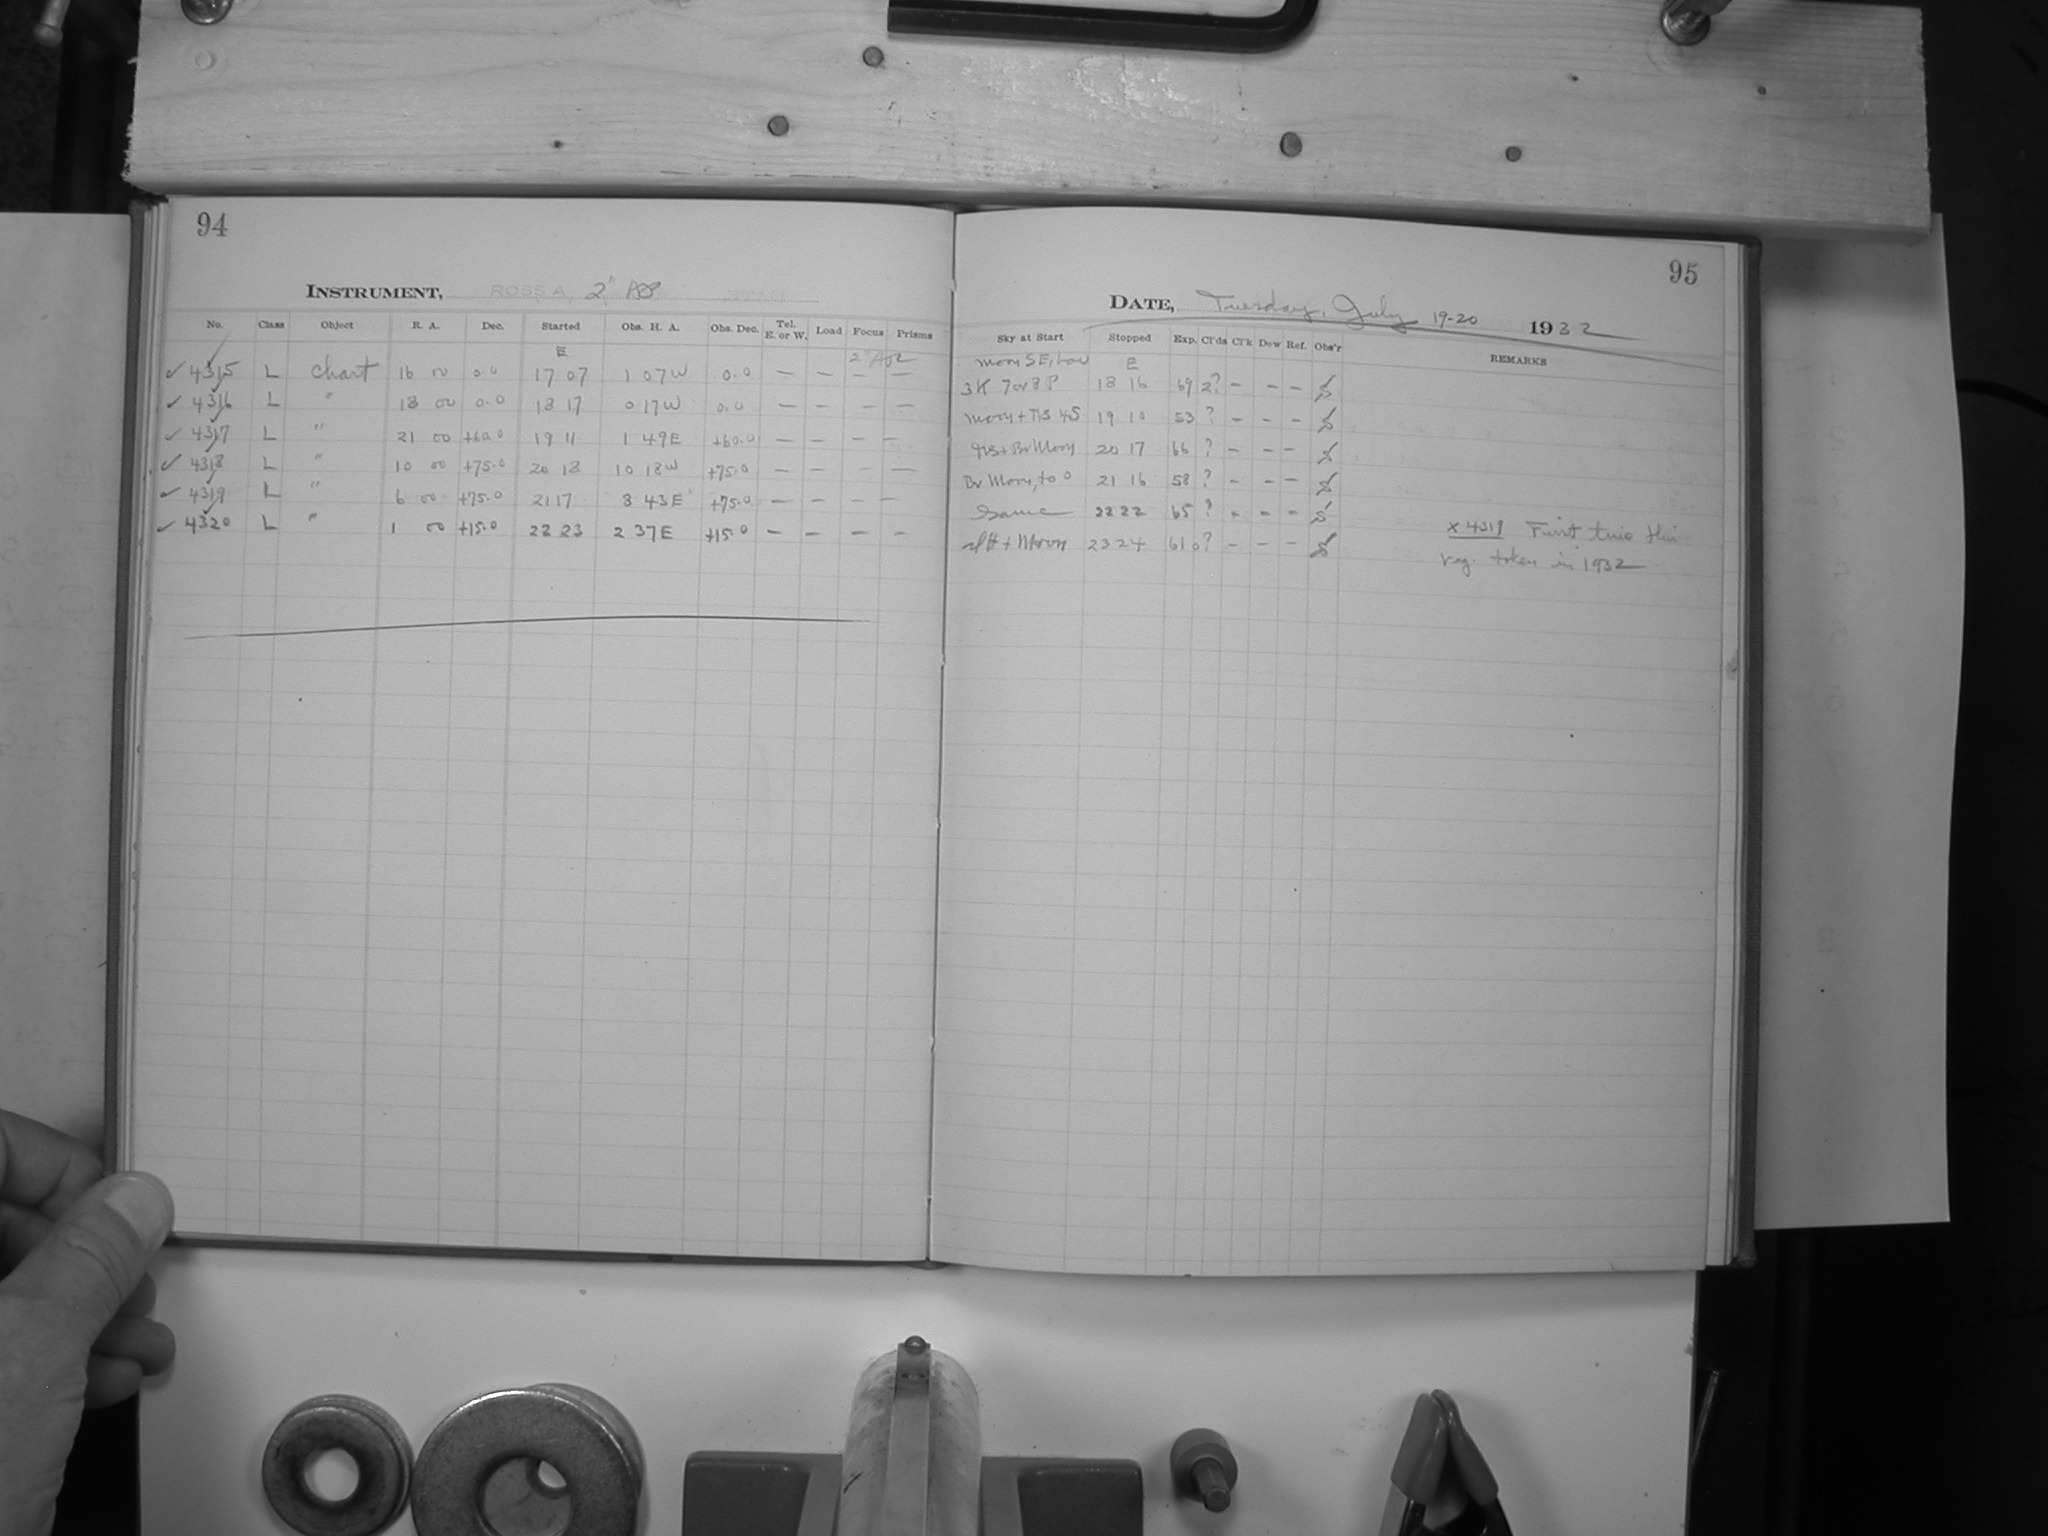 94
INSTRUMENT, ROSS A, 2"
No. Class Object R. A. Dec. Started Obs. H. A. Obs. Dec. Tel. E. or W. Load Focus Prisms
E
✓ 4315 L Chart 16 00 0.0 17 07 1 07 W 0.0 — — — —
✓ 4316 L " 18 00 0.0 18 17 0 17 W 0.0 — — — —
✓ 4317 L " 21 00 +60.0 19 11 1 49 E +60.0 — — — —
✓ 4318 L " 10 00 +75.0 20 18 10 18 W +75.0 — — — —
✓ 4319 L " 6 00 +75.0 21 17 8 43 E +75.0 — — — —
✓ 4320 L " 1 00 +15.0 22 23 2 37 E +15.0 — — — —
95
DATE, Tuesday, July 19-20 1932
Sky at Start Stopped Exp. Cl'ds Cl'k Dew Ref. Obs'r REMARKS
Moon SE, Low E
3K 7 or 8 P 18 16 69 2? — — —
Moon + 19 10 53 ? — — —
+ Br Moon 20 17 66 ? — — —
Br. Moon, to 0 21 16 58 ? — — —
Same 22 22 65 ? — — —
+ Moon 23 24 61 0? — — —
x 4319 First time this
reg. taken in 1932